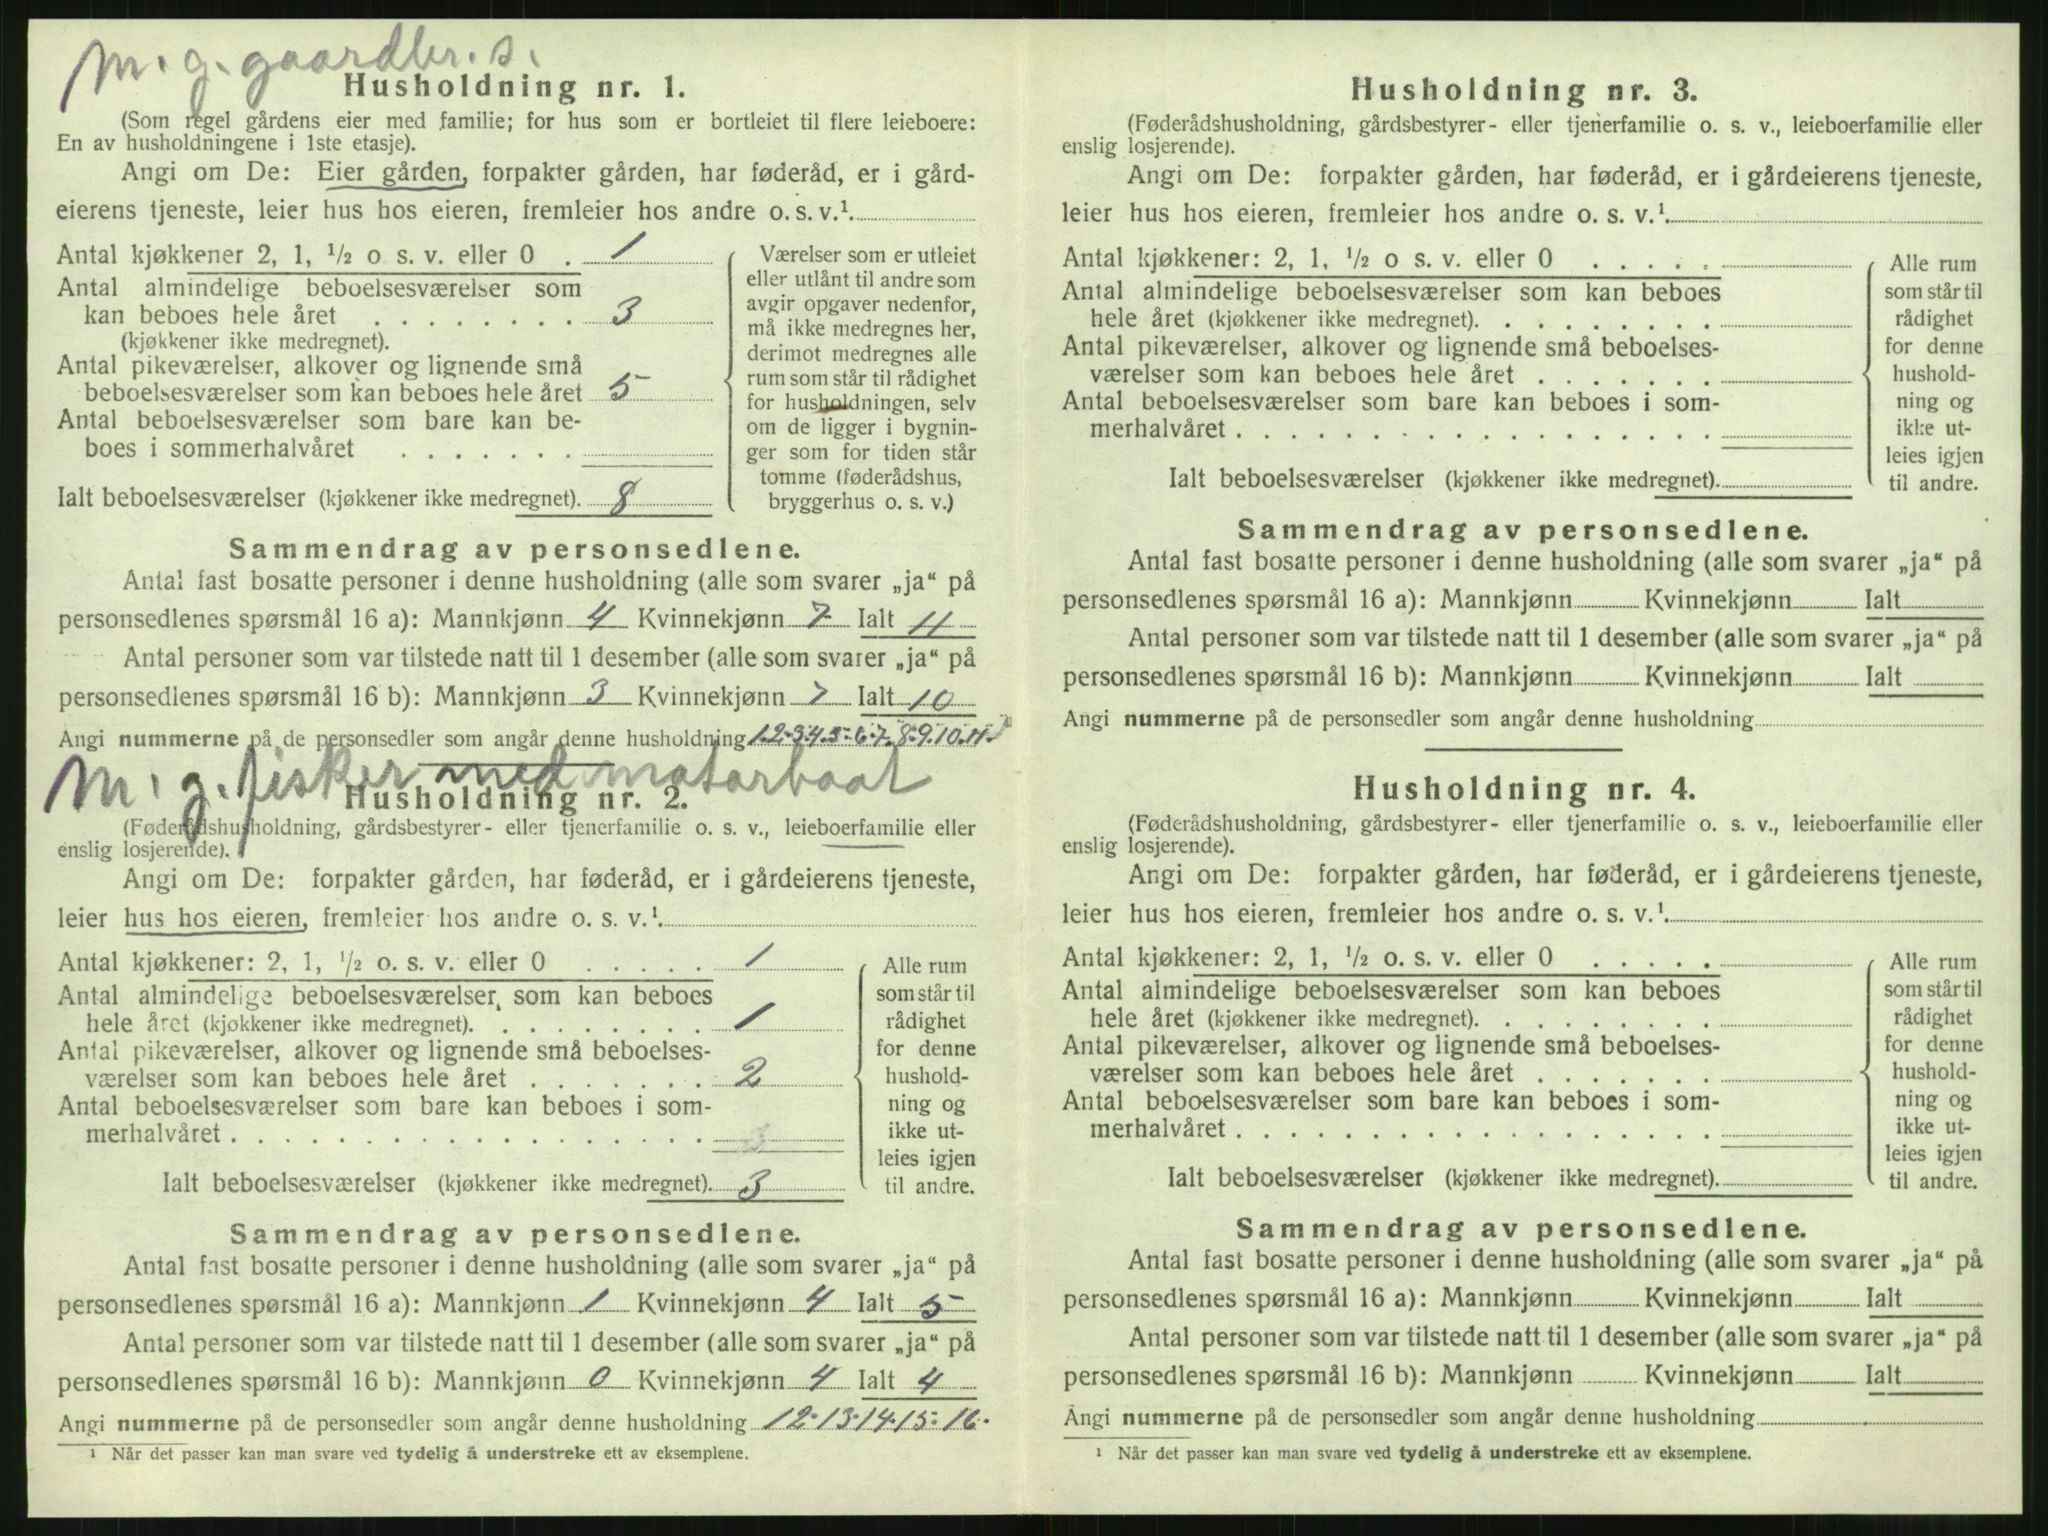 m. g. gaardbr. s.
Husholdning nr. 1.
(Som regel gårdens eier med familie; for hus som er bortleiet til flere leieboere:
En av husholdningene i 1ste etasje).
Angi om De: Eier gården, forpakter gården, har føderåd, er i gård-
eierens tjeneste, leier hus hos eieren, fremleier hos andre o. s. v.¹.
Antal kjøkkener 2, 1, ½ o s. v. eller 0 . 1
Antal almindelige beboelsesværelser som
kan beboes hele året . . . . . . . . 3
(kjøkkener ikke medregnet).
Antal pikeværelser, alkover og lignende små
beboelsesværelser som kan beboes hele året 5
Antal beboelsesværelser som bare kan be-
boes i sommerhalvåret . . . . . . .
Ialt beboelsesværelser (kjøkkener ikke medregnet). 8
Værelser som er utleiet
eller utlånt til andre som
avgir opgaver nedenfor,
må ikke medregnes her,
derimot medregnes alle
rum som står til rådighet
for husholdningen, selv
om de ligger i bygnin-
ger som for tiden står
tomme (føderådshus,
bryggerhus o. s. v.)
Sammendrag av personsedlene.
Antal fast bosatte personer i denne husholdning (alle som svarer „ja“ på
personsedlenes spørsmål 16 a): Mannkjønn 4 Kvinnekjønn 7 Ialt 11
Antal personer som var tilstede natt til 1 desember (alle som svarer „ja“ på
personsedlenes spørsmål 16 b): Mannkjønn 3 Kvinnekjønn 7 Ialt 10
Angi nummerne på de personsedler som angår denne husholdning 1.2-3.4.5-6-7.8-9.10.11-
m. g. fisker med motorbaat
Husholdning nr. 2.
(Føderådshusholdning, gårdsbestyrer- eller tjenerfamilie o. s. v., leieboerfamilie eller
enslig losjerende).
Angi om De: forpakter gården, har føderåd, er i gårdeierens tjeneste,
leier hus hos eieren, fremleier hos andre o. s. v.¹.
Antal kjøkkener: 2, 1, ½ o. s. v. eller 0 . . . . . 1
Antal almindelige beboelsesværelser som kan beboes
hele året (kjøkkener ikke medregnet). . . . . . . . . 1
Antal pikeværelser, alkover og lignende små beboelses-
værelser som kan beboes hele året . . . . . . . 2
Antal beboelsesværelser som bare kan beboes i som-
merhalvåret . . . . . . . . . . . . . . . . . . 3
Ialt beboelsesværelser (kjøkkener ikke medregnet). 3
Alle rum
som står til
rådighet
for denne
hushold-
ning og
ikke ut-
leies igjen
til andre.
Sammendrag av personsedlene.
Antal fast bosatte personer i denne husholdning (alle som svarer „ja“ på
personsedlenes spørsmål 16 a): Mannkjønn 1 Kvinnekjønn 4 Ialt 5
Antal personer som var tilstede natt til 1 desember (alle som svarer „ja“ på
personsedlenes spørsmål 16 b): Mannkjønn 0 Kvinnekjønn 4 Ialt 4
Angi nummerne på de personsedler som angår denne husholdning 12-13-14-15-16.
¹ Når det passer kan man svare ved tydelig å understreke ett av eksemplene.
Husholdning nr. 3.
(Føderådshusholdning, gårdsbestyrer- eller tjenerfamilie o. s. v., leieboerfamilie eller
enslig losjerende).
Angi om De: forpakter gården, har føderåd, er i gårdeierens tjeneste,
leier hus hos eieren, fremleier hos andre o. s. v.¹.
Antal kjøkkener: 2, 1, ½ o s. v. eller 0 . . . . .
Antal almindelige beboelsesværelser som kan beboes
hele året (kjøkkener ikke medregnet). . . . . . . . .
Antal pikeværelser, alkover og lignende små beboelses-
værelser som kan beboes hele året . . . . . . .
Antal beboelsesværelser som bare kan beboes i som-
merhalvåret . . . . . . . . . . . . . . . . . .
Ialt beboelsesværelser (kjøkkener ikke medregnet).
Alle rum
som står til
rådighet
for denne
hushold-
ning og
ikke ut-
leies igjen
til andre.
Sammendrag av personsedlene.
Antal fast bosatte personer i denne husholdning (alle som svarer „ja“ på
personsedlenes spørsmål 16 a): Mannkjønn Kvinnekjønn Ialt
Antal personer som var tilstede natt til 1 desember (alle som svarer „ja“ på
personsedlenes spørsmål 16 b): Mannkjønn Kvinnekjønn Ialt
Angi nummerne på de personsedler som angår denne husholdning
Husholdning nr. 4.
(Føderådshusholdning, gårdsbestyrer- eller tjenerfamilie o. s. v., leieboerfamilie eller
enslig losjerende).
Angi om De: forpakter gården, har føderåd, er i gårdeierens tjeneste,
leier hus hos eieren, fremleier hos andre o. s. v.¹.
Antal kjøkkener: 2, 1, ½ o. s. v. eller 0 . . . . .
Antal almindelige beboelsesværelser som kan beboes
hele året (kjøkkener ikke medregnet). . . . . . . . .
Antal pikeværelser, alkover og lignende små beboelses-
værelser som kan beboes hele året . . . . . . .
Antal beboelsesværelser som bare kan beboes i som-
merhalvåret . . . . . . . . . . . . . . . . . .
Ialt beboelsesværelser (kjøkkener ikke medregnet).
Alle rum
som står til
rådighet
for denne
hushold-
ning og
ikke ut-
leies igjen
til andre.
Sammendrag av personsedlene.
Antal fast bosatte personer i denne husholdning (alle som svarer „ja“ på
personsedlenes spørsmål 16 a): Mannkjønn Kvinnekjønn Ialt
Antal personer som var tilstede natt til 1 desember (alle som svarer „ja“ på
personsedlenes spørsmål 16 b): Mannkjønn Kvinnekjønn Ialt
Angi nummerne på de personsedler som angår denne husholdning
¹ Når det passer kan man svare ved tydelig å understreke ett av eksemplene.